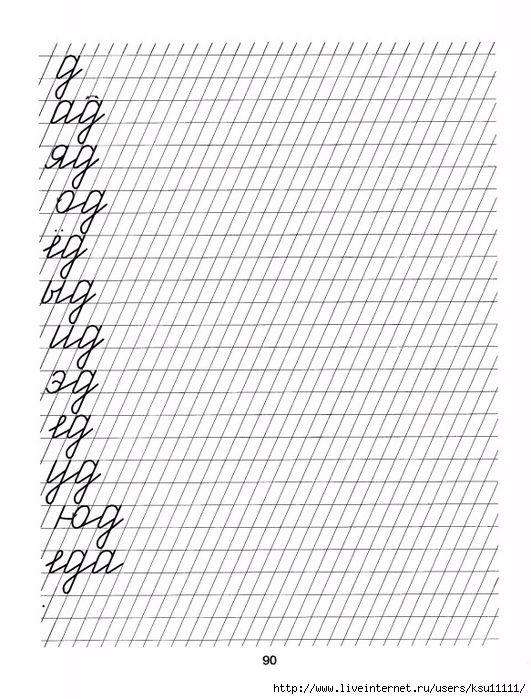 д
ад
яд
од
ёд
ыд
ид
эд
ед
уд
юд
еда
90
http://www.liveinternet.ru/users/ksu11111/